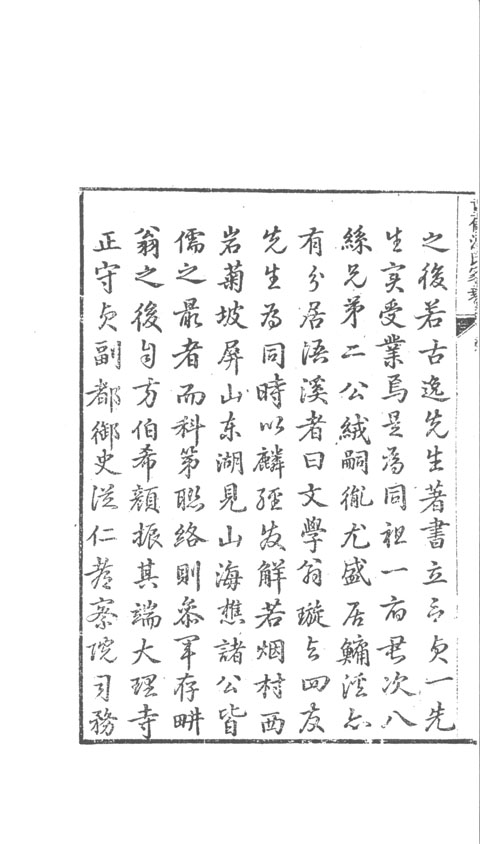 之後若古逸先生著書立言貞一先
生实受業焉是為同祖一府君次八
絲兄弟二公絨嗣徹尤盛居鱅溪亦
有分居浯溪者曰文學翁璇与四友
先生為同時以麟經发解若烟村西
岩菊坡屏山东湖見山海樵諸公皆
儒之最者而科第聯络則参军存畊
翁之後自方伯希顏振其端大理寺
正守贞副都御史從仁都察院司務